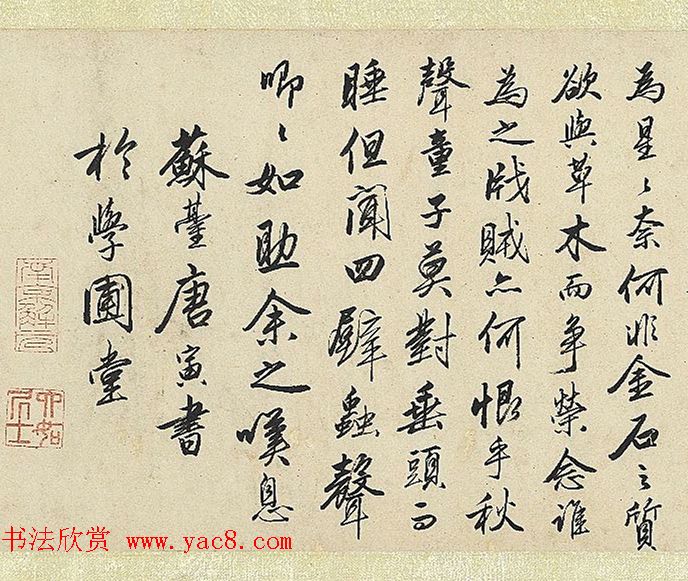 為星〻奈何非金石之質
欲與草木而争榮念誰
為之戕賊亦何恨乎秋
聲童子莫對垂頭而
睡但聞四壁蟲聲
唧〻如助余之嘆息
蘇臺唐寅書
於學圃堂
南京解元
六如居士
书法欣赏 www.yac8.com